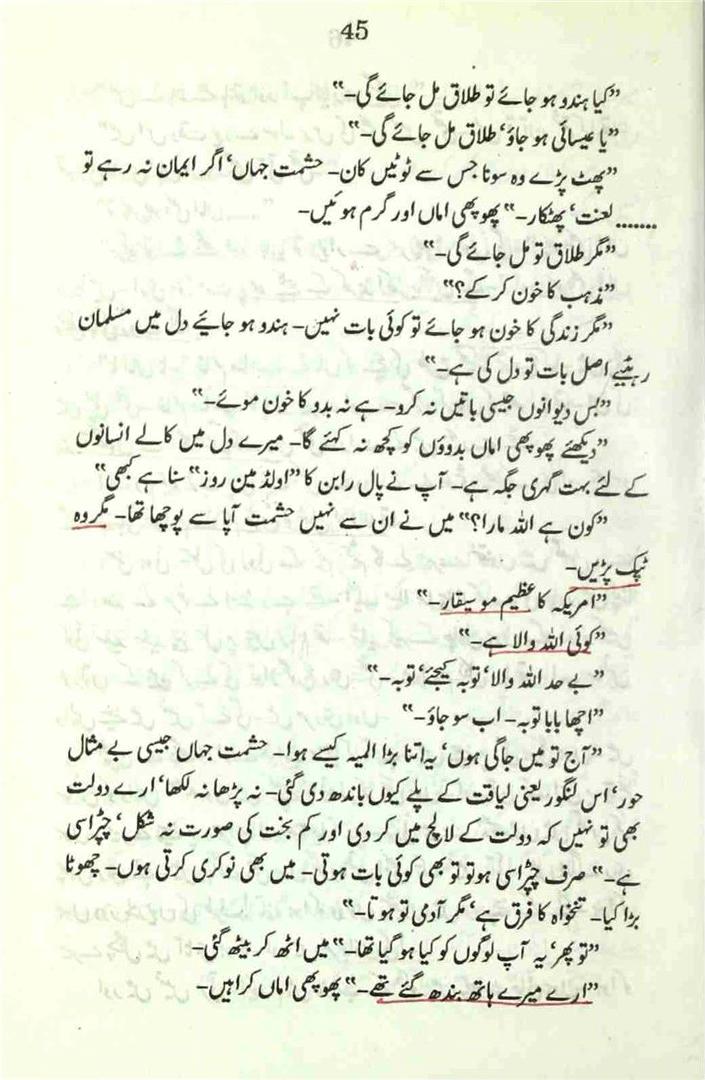 45
”کیا ہندو ہو جائے تو طلاق مل جائے گی۔“
”یا عیسائی ہو جاؤ‘ طلاق مل جائے گی۔“
”پھٹ پڑے وہ سونا جس سے ٹوٹیں کان۔ حشمت جہاں‘ اگر ایمان نہ رہے تو
....... لعنت‘ پھٹکار۔“ پھوپھی اماں اور گرم ہوئیں۔
”مگر طلاق تو مل جائے گی۔“
”مذہب کا خون کر کے؟“
”مگر زندگی کا خون ہو جائے تو کوئی بات نہیں۔ ہندو ہو جائیے دل میں مسلمان
رہئیے اصل بات تو دل کی ہے۔“
”بس دیوانوں جیسی باتیں نہ کرو۔ ہے نہ بدو کا خون موئے۔“
”دیکھئے پھوپھی اماں بدوؤں کو کچھ نہ کہئے گا۔ میرے دل میں کالے انسانوں
کے لئے بہت گہری جگہ ہے۔ آپ نے پال رابن کا ”اولڈ مین روز“ سنا ہے کبھی“
”کون ہے اللہ مارا؟“ میں نے ان سے نہیں حشمت آپا سے پوچھا تھا۔ مگر وہ
ٹپک پڑیں۔
”امریکہ کا عظیم موسیقار۔“
”کوئی اللہ والا ہے۔“
”بے حد اللہ والا‘ توبہ کیجئے‘ توبہ۔“
”اچھا بابا توبہ۔ اب سو جاؤ۔“
”آج تو میں جاگی ہوں‘ یہ اتنا بڑا المیہ کیسے ہوا۔ حشمت جہاں جیسی بے مثال
حور‘ اس لنگور یعنی لیاقت کے پلے کیوں باندھ دی گئی۔ نہ پڑھا نہ لکھا‘ ارے دولت
بھی تو نہیں کہ دولت کے لالچ میں کر دی اور کم بخت کی صورت نہ شکل‘ چپڑاسی
ہے۔“ صرف چپڑاسی ہو تو تو بھی کوئی بات ہوتی۔ میں بھی نوکری کرتی ہوں۔ چھوٹا
بڑا کیا۔ تنخواہ کا فرق ہے‘ مگر آدمی تو ہوتا۔“
”تو پھر‘ یہ آپ لوگوں کو کیا ہو گیا تھا۔“ میں اٹھ کر بیٹھ گئی۔
”ارے میرے ہاتھ بندھ گئے تھے۔“ پھوپھی اماں کراہیں۔